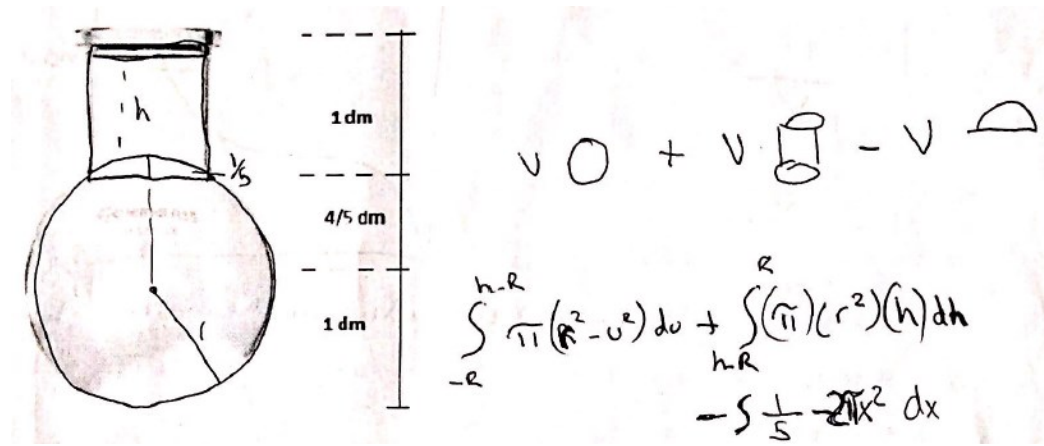 h
1/5
1
1 dm
4/5 dm
1 dm
V + V - V
∫_{-R}^{h-R} π(R²-u²) du + ∫_{h-R}^{R} (π)(r²)(h) dh
- ∫ 1/5 - 2πx² dx